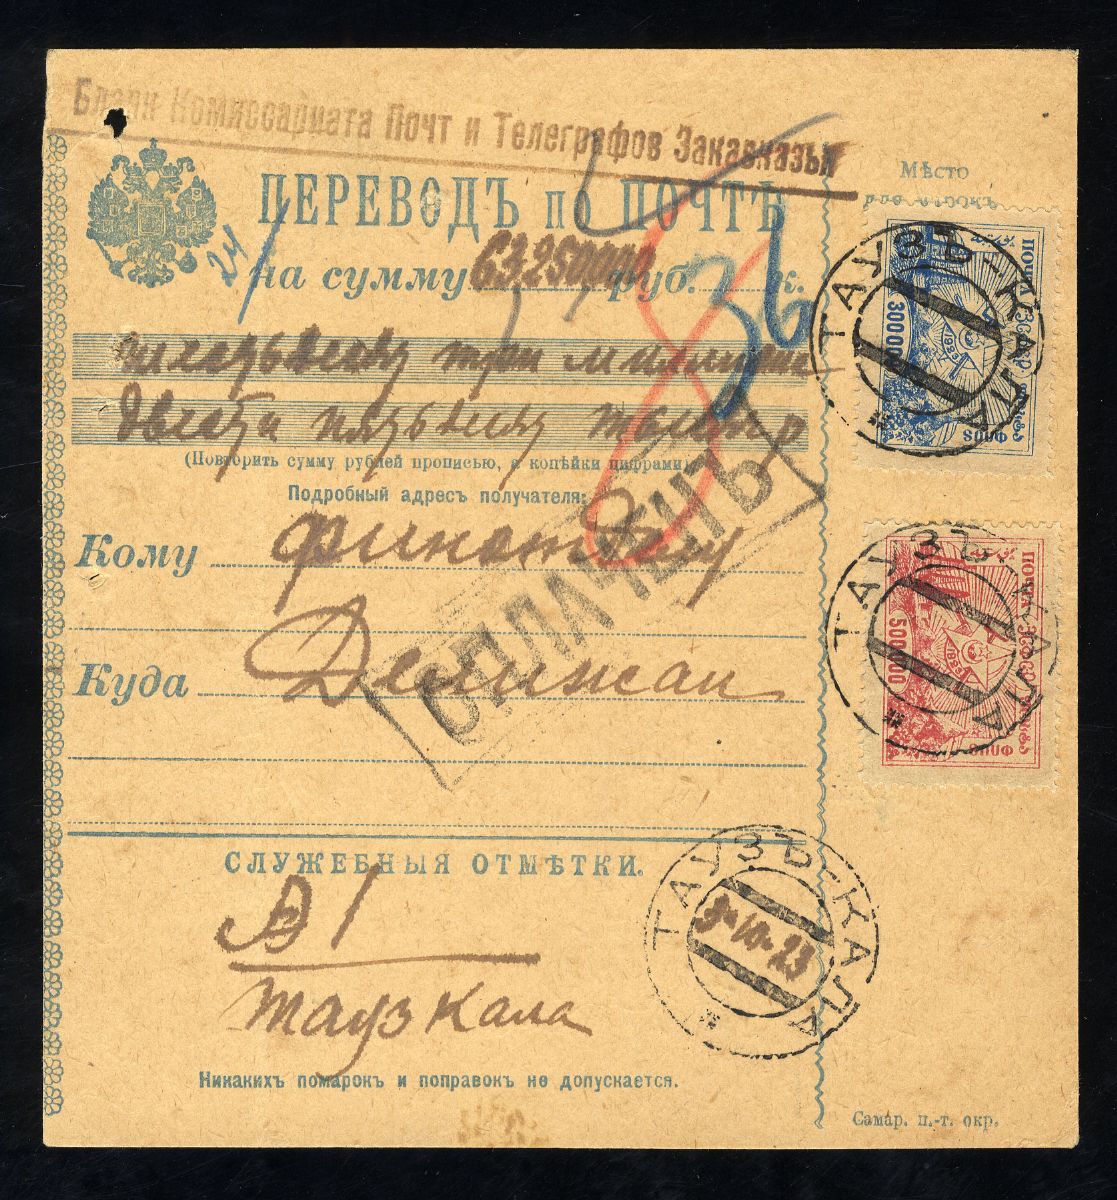 Бланк Комиссариата Почт и Телеграфов Закавказья
Мѣсто
ПЕРЕВОДЪ по ПОЧТѢ
24
на сумму 63250000 руб. к.
36
три миллиона
двести пятьдесят тысяч
(Повторить сумму рублей прописью, а копѣйки цифрами)
Подробный адресъ получателя:
Кому Финотделу
Куда Делижан
ОПЛАЧЕНЪ
ПОЧТА ЗСФСР
300000
ТАУЗЪ-КАЛА
ПОЧТА ЗСФСР
500000
ТАУЗЪ-КАЛА
СЛУЖЕБНЫЯ ОТМѢТКИ.
1
Тауз Кала
ТАУЗЪ-КАЛА
9 10 23
Никакихъ помарокъ и поправокъ не допускается.
Самар. п.-т. окр.